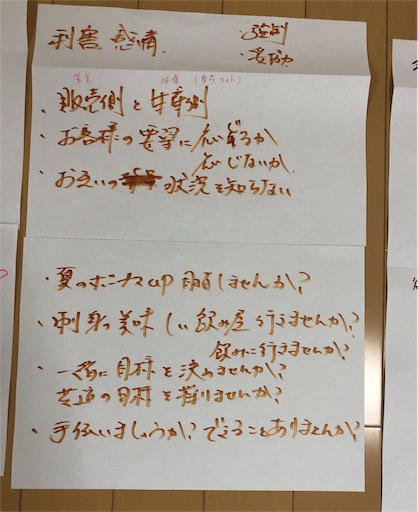 利害 感情
・強制
・妥協
営業
(も含、コスト)
・販売側と 側
・お客様の要望に応ずるか
応じないか
・お互いの 状況を知らない
・夏のボーナスup 目指しませんか?
・刺身の美味しい飲み屋行きませんか?
飲みに行きませんか?
・一緒に目標を決めませんか?
共通の目標を握りませんか?
・手伝いましょうか?できることありませんか?